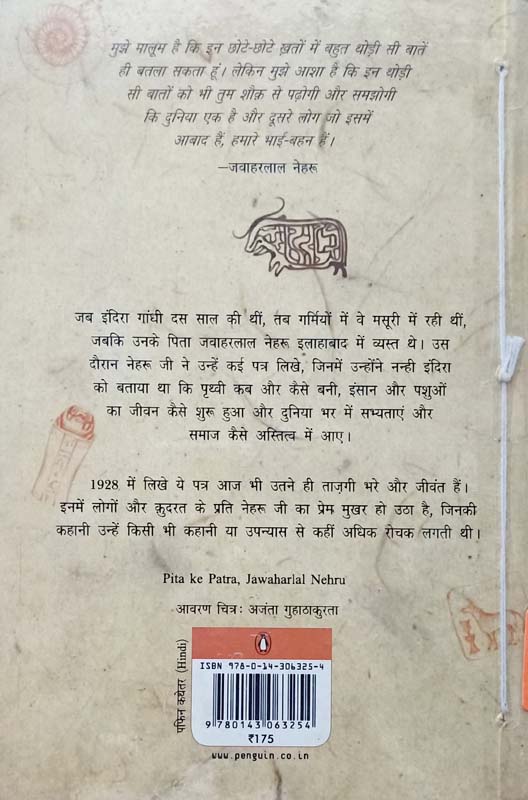 मुझे मालूम है कि इन छोटे-छोटे ख़तों में बहुत थोड़ी सी बातें
ही बतला सकता हूं। लेकिन मुझे आशा है कि इन थोड़ी
सी बातों को भी तुम शौक़ से पढ़ोगी और समझोगी
कि दुनिया एक है और दूसरे लोग जो इसमें
आबाद हैं, हमारे भाई-बहन हैं।
—जवाहरलाल नेहरू
जब इंदिरा गांधी दस साल की थीं, तब गर्मियों में वे मसूरी में रही थीं,
जबकि उनके पिता जवाहरलाल नेहरू इलाहाबाद में व्यस्त थे। उस
दौरान नेहरू जी ने उन्हें कई पत्र लिखे, जिनमें उन्होंने नन्ही इंदिरा
को बताया था कि पृथ्वी कब और कैसे बनी, इंसान और पशुओं
का जीवन कैसे शुरू हुआ और दुनिया भर में सभ्यताएं और
समाज कैसे अस्तित्व में आए।
1928 में लिखे ये पत्र आज भी उतने ही ताज़गी भरे और जीवंत हैं।
इनमें लोगों और क़ुदरत के प्रति नेहरू जी का प्रेम मुखर हो उठा है, जिनकी
कहानी उन्हें किसी भी कहानी या उपन्यास से कहीं अधिक रोचक लगती थी।
Pita ke Patra, Jawaharlal Nehru
आवरण चित्र: अजंता गुहाठाकुरता
पफ़िन कथेतर (Hindi)
ISBN 978-0-14-306325-4
9 780143 063254
₹175
www.penguin.co.in